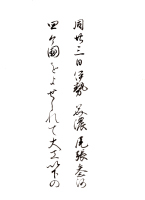 同廿三日伊勢美濃尾張参河
四ケ国をよせられて大工以下の